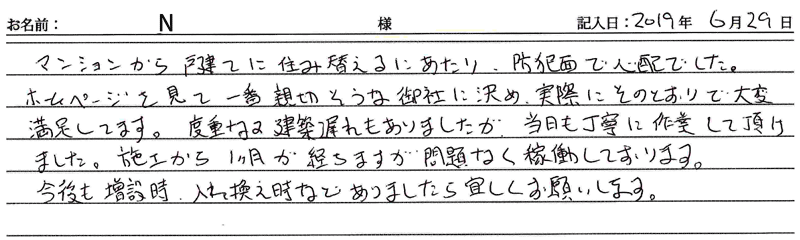 お名前： N 様 記入日：2019年 6月29日
マンションから 戸建てに 住み替えるにあたり、防犯面で心配でした。
ホームページを見て 一番 親切そうな 御社に決め、実際にそのとおりで大変
満足してます。 度重なる 建築遅れもありましたが、当日も丁寧に 作業して頂け
ました。施工から 1ヶ月が 経ちますが 問題なく 稼働しております。
今後も 増設時、入れ換え時など ありましたら 宜しくお願いします。